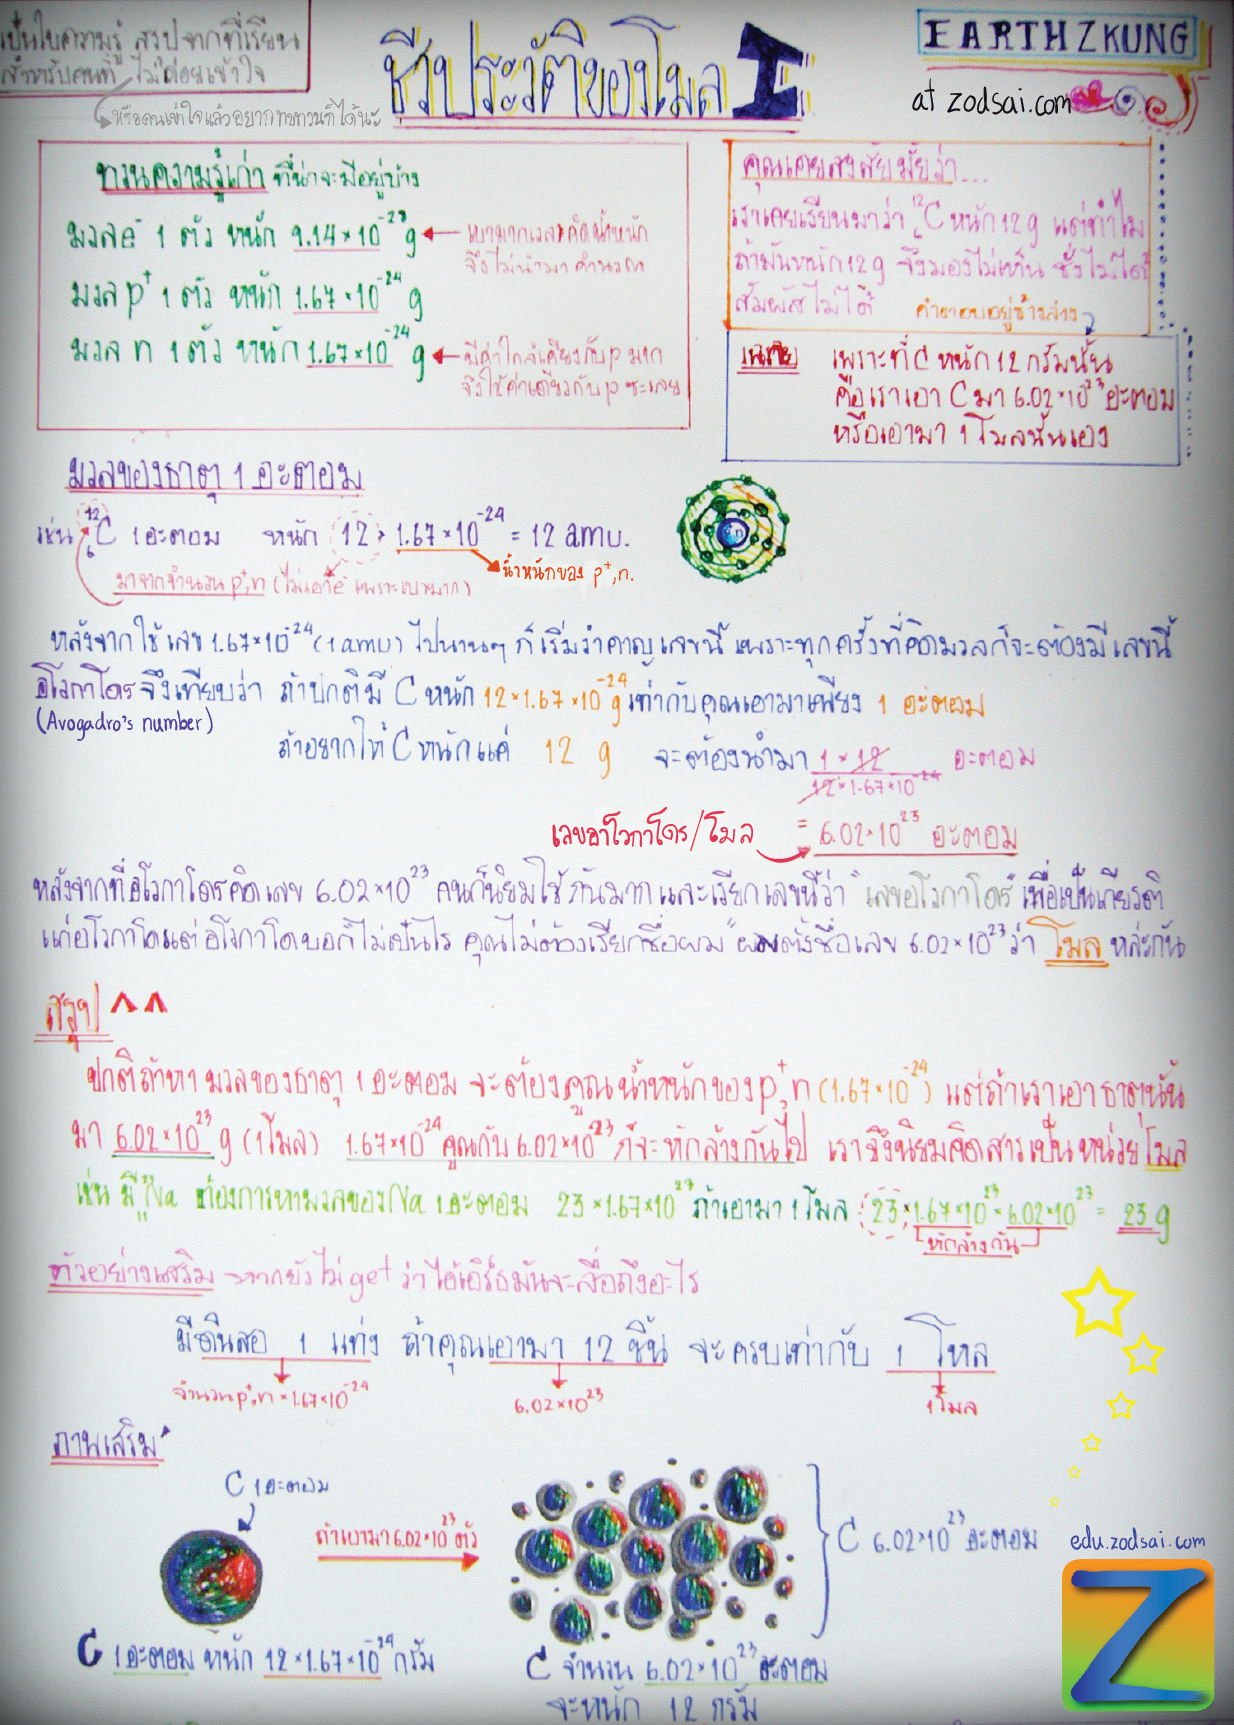 เป็นใบความรู้ สรุปจากที่เรียน
สำหรับคนที่ ไม่ค่อยเข้าใจ
หรือคนเข้าใจแล้วอยากทบทวนก็ได้นะ
ชีวประวัติของโมล I
EARTHZKUNG
at zodsai.com
ทวนความรู้เก่า ที่น่าจะมีอยู่บ้าง
มวล e⁻ 1 ตัว หนัก 9.14×10⁻²⁸ g
เบามากเวลาคิดน้ำหนัก
จึงไม่นำมาคำนวณ
มวล p⁺ 1 ตัว หนัก 1.67×10⁻²⁴ g
มวล n 1 ตัว หนัก 1.67×10⁻²⁴ g
มีค่าใกล้เคียงกับ p มาก
จึงใช้ค่าเดียวกับ p ซะเลย
คุณเคยสงสัยมั้ยว่า...
เราเคยเรียนมาว่า ¹²₆C หนัก 12 g แต่ทำไม
ถ้ามันหนัก 12 g จึงมองไม่เห็น ชั่งไม่ได้
สัมผัสไม่ได้
คำตอบอยู่ข้างล่าง
เพราะที่ C หนัก 12 กรัมนั้น
คือเราเอา C มา 6.02×10²³ อะตอม
หรือเอามา 1 โมลนั่นเอง
มวลของธาตุ 1 อะตอม
เช่น ¹²₆C 1 อะตอม หนัก 12 × 1.67×10⁻²⁴ = 12 amu.
มาจากจำนวน p⁺,n (ไม่เอา e⁻ เพราะเบามาก)
น้ำหนักของ p⁺,n.
หลังจากใช้เลข 1.67×10⁻²⁴ (1 amu) ไปนานๆ ก็เริ่มรำคาญเลขนี้ เพราะทุกครั้งที่คิดมวลก็จะต้องมีเลขนี้
อโวกาโดรจึงเทียบว่า ถ้าปกติมี C หนัก 12×1.67×10⁻²⁴ g เท่ากับคุณเอามาเพียง 1 อะตอม
(Avogadro's number)
ถ้าอยากให้ C หนักแค่ 12 g จะต้องนำมา 1 × 12 / 12×1.67×10⁻²⁴ อะตอม
เลขอาโวกาโดร/โมล = 6.02×10²³ อะตอม
หลังจากที่อโวกาโดรคิดเลข 6.02×10²³ คนก็นิยมใช้กันมากและเรียกเลขนี้ว่า "เลขอโวกาโดร" เพื่อเป็นเกียรติ
แก่อโวกาโด แต่อโวกาโดบอกไม่เป็นไร คุณไม่ต้องเรียกชื่อผม "ผมตั้งชื่อเลข 6.02×10²³ ว่า โมล หล่ะกัน
สรุป ^^
ปกติถ้าหา มวลของธาตุ 1 อะตอม จะต้องคูณน้ำหนักของ p⁺,n (1.67×10⁻²⁴) แต่ถ้าเราเอาธาตุนั้น
มา 6.02×10²³ g (1 โมล) 1.67×10⁻²⁴ คูณกับ 6.02×10²³ ก็จะหักล้างกันไป เราจึงนิยมคิดสารเป็นหน่วยโมล
เช่น มี ²³₁₁Na ต้องการหามวลของ Na 1 อะตอม 23×1.67×10²³ ถ้าเอามา 1 โมล 23×1.67×10²³×6.02×10²³ = 23 g
หักล้างกัน
ตัวอย่างเสริม หากยังไม่ get ว่าไอ้เอิร์ธมันจะสื่อถึงอะไร
มีดินสอ 1 แท่ง ถ้าคุณเอามา 12 ชิ้น จะครบเท่ากับ 1 โหล
จำนวน p⁺,n × 1.67×10⁻²⁴
6.02×10²³
1 โมล
ภาพเสริม
C 1 อะตอม
ถ้าเอามา 6.02×10²³ ตัว
C 6.02×10²³ อะตอม
edu.zodsai.com
Z
C 1 อะตอม หนัก 12×1.67×10⁻²⁴ กรัม
C จำนวน 6.02×10²³ อะตอม
จะหนัก 12 กรัม